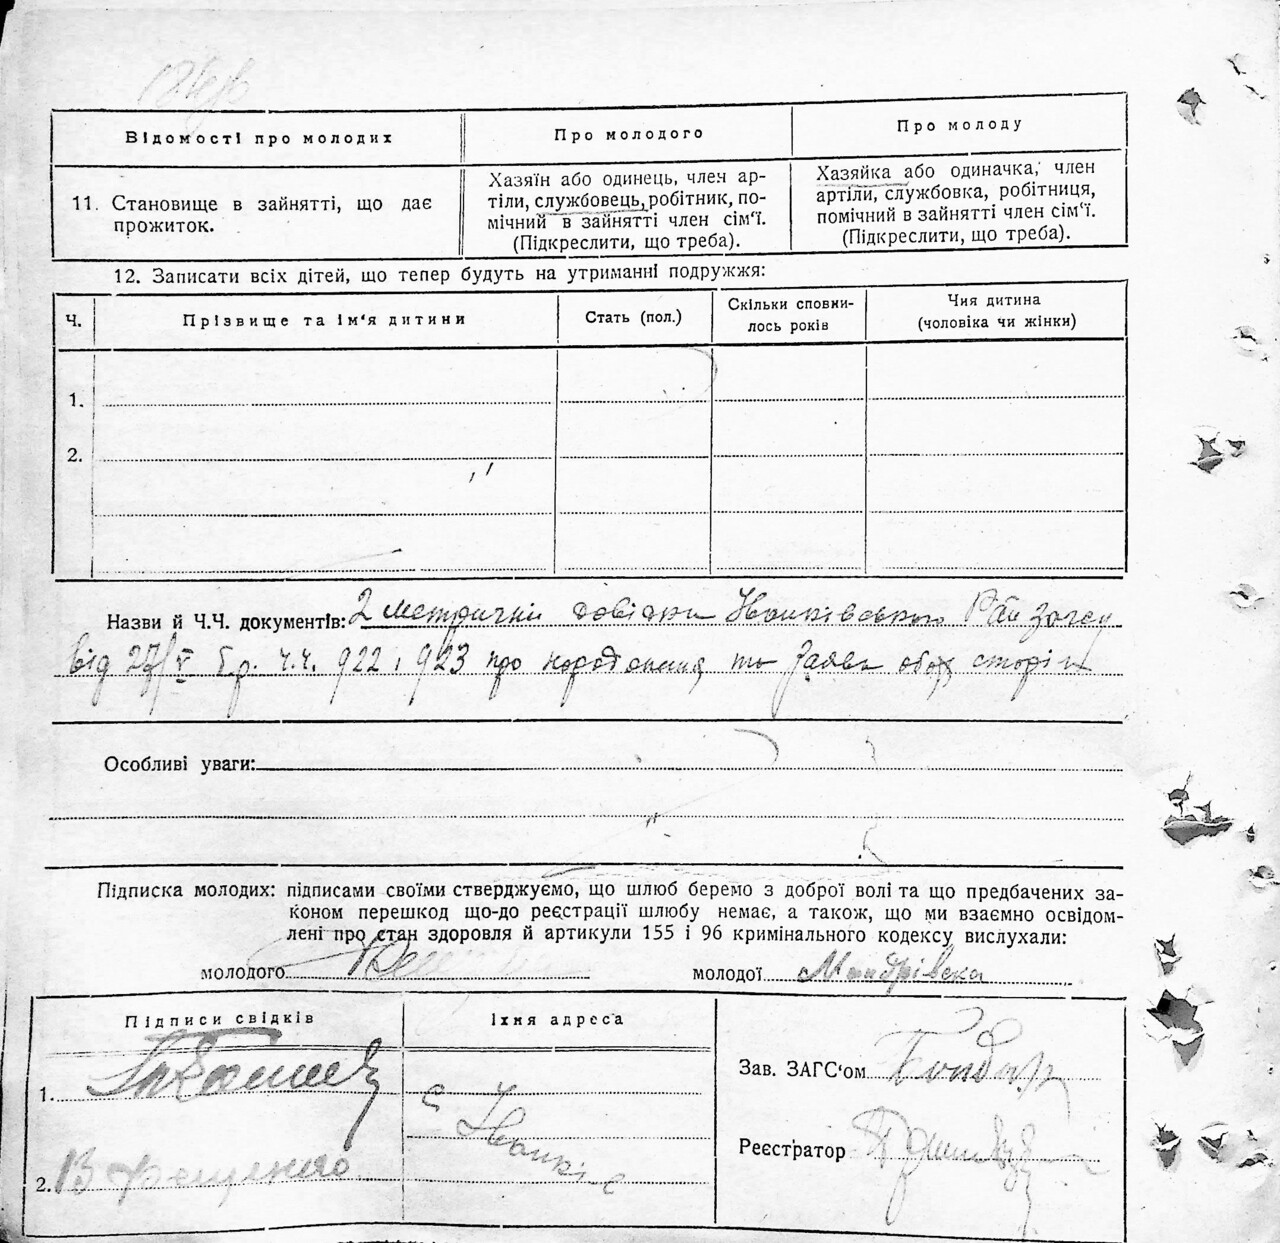 Відомості про молодих
Про молодого
Про молоду
11. Становище в зайнятті, що дає
прожиток.
Хазяїн або одинець, член ар-
тіли, службовець, робітник, по-
мічний в зайнятті член сім'ї.
(Підкреслити, що треба).
Хазяйка або одиначка, член
артіли, службовка, робітниця,
помічний в зайнятті член сім'ї.
(Підкреслити, що треба).
12. Записати всіх дітей, що тепер будуть на утриманні подружжя:
Ч.
Прізвище та ім'я дитини
Стать (пол.)
Скільки сповни-
лось років
Чия дитина
(чоловіка чи жінки)
1.
2.
Назви й Ч.Ч. документів: 2 метричні довідки Іванківського Рай Загсу
від 27/V б.р. ч.ч. 922 і 923 про народження та заява обох сторін
Особливі уваги:
Підписка молодих: підписами своїми стверджуємо, що шлюб беремо з доброї волі та що предбачених за-
коном перешкод що-до реєстрації шлюбу немає, а також, що ми взаємно освідом-
лені про стан здоровля й артикули 155 і 96 кримінального кодексу вислухали:
молодого
молодої Мандрівска
Підписи свідків
Їхня адреса
1.
с Іванків
2.
Зав. ЗАГС'ом Бондар
Реєстратор